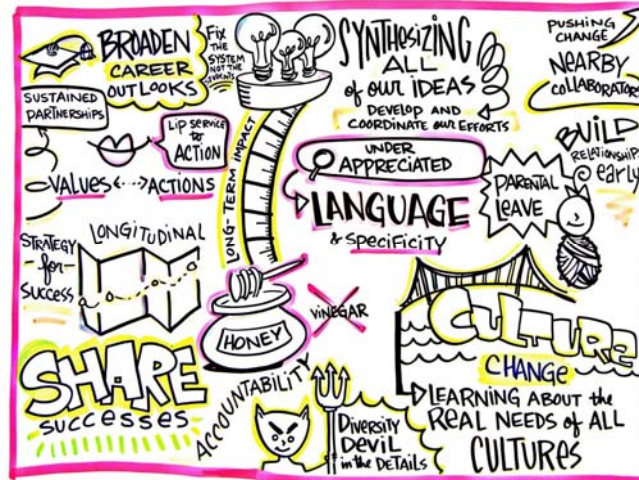 BROADEN
CAREER
OUTLOOKS
Fix
THE
SYSTEM
NOT THE
STUDENTS
SYNTHESIZING
ALL
of our IDEAS
DEVELOP AND
COORDINATE OUR EFFORTS
PUSHING
CHANGE
NEARBY
COLLABORATORS
SUSTAINED
PARTNERSHIPS
Lip SERVICE
to
ACTION
VALUES
ACTIONS
LONG-TERM IMPACT
UNDER
APPRECIATED
LANGUAGE
& SPECIFICITY
PARENTAL
LEAVE
BUILD
RELATIONSHIPS
early
STRATEGY
for
SUCCESS
LONGITUDINAL
HONEY
VINEGAR
CULTURE
CHANGE
LEARNING ABOUT the
REAL NEEDS of ALL
CULTURES
SHARE
SUCCESSES
ACCOUNTABILITY
DIVERSITY
DEVIL
in the DETAILS